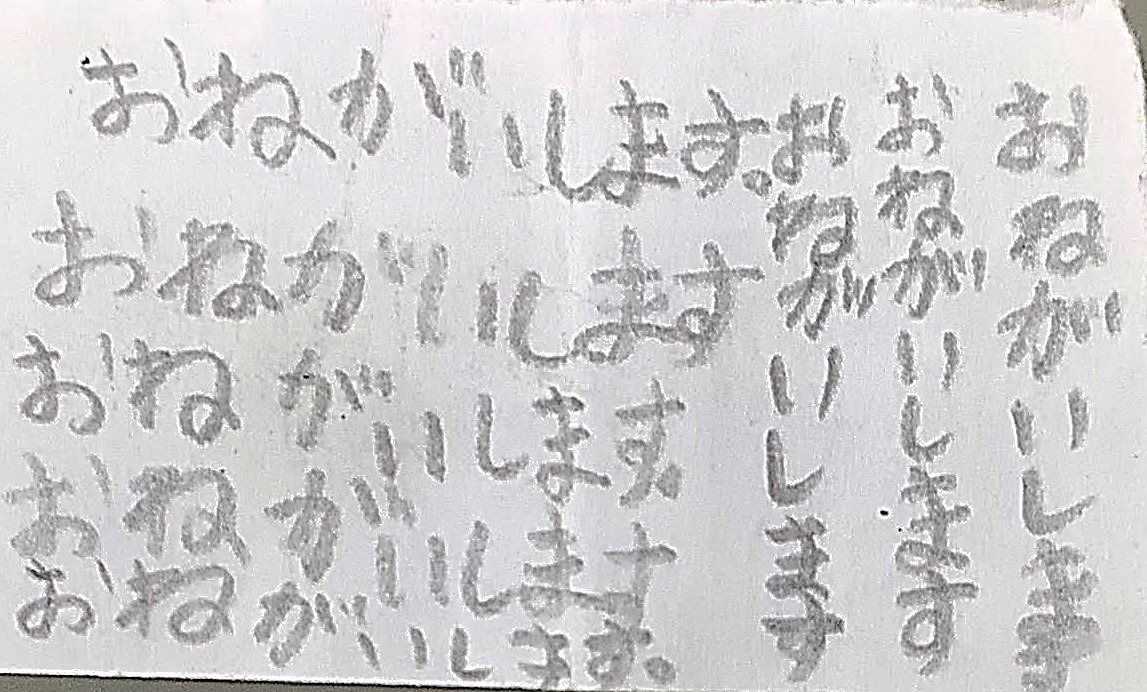 おねがいします。
おねがいします
おねがいします
おねがいします
おねがいします。
おねがいします
おねがいします
おねがいします